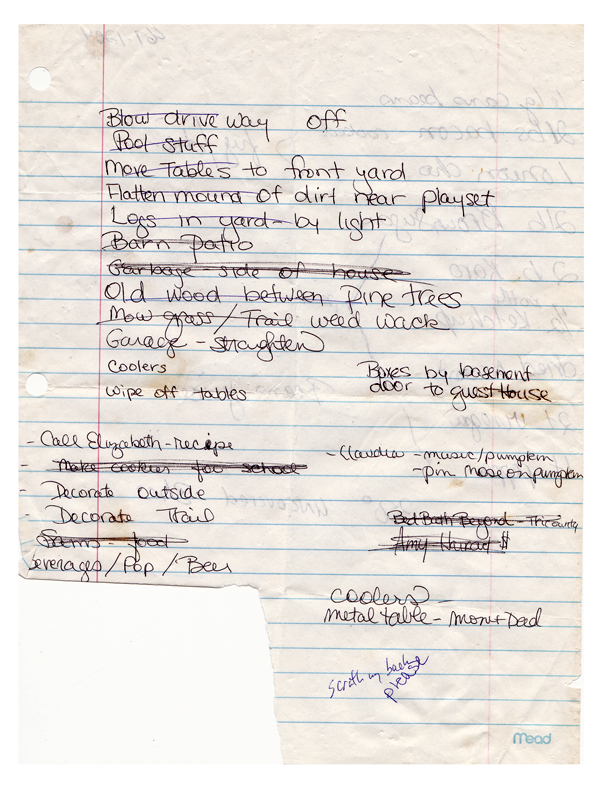 Blow drive way off
Pool stuff
Move Tables to front yard
Flatten mound of dirt near playset
Logs in yard - by light
Barn patio
Garbage - side of house
Old wood between Pine trees
Mow grass / Trail weed wack
Garage - straighten
Coolers
wipe off tables
Boxes by basement
door to guest House
- Call Elizabeth - recipe
- Make cookies for school
- Decorate outside
- Decorate Trail
Sams - food
beverages / Pop / Beer
- Claudia - music / pumpkin
- pin nose on pumpkin
Bed Bath Beyond - Tricounty
Amy $
coolers -
metal table - mom + Dad
Scratch my back
please
Mead